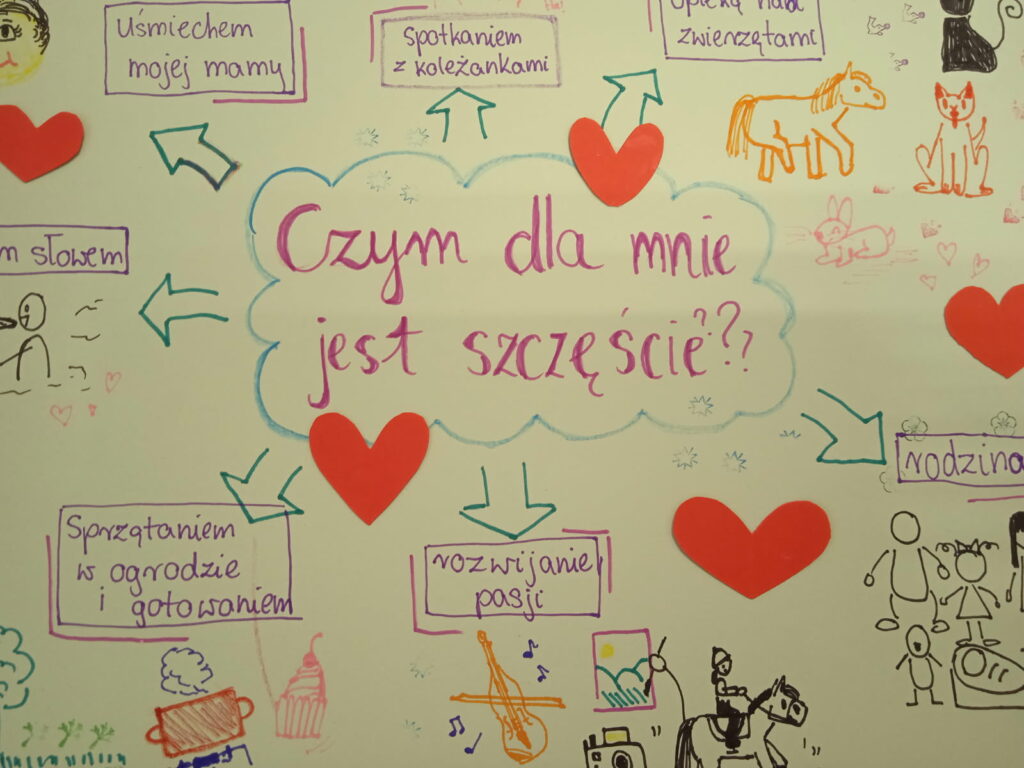 Uśmiechem
mojej mamy
Spotkaniem
z koleżankami
Opieką nad
zwierzętami
m słowem
Czym dla mnie
jest szczęście???
rodzina
Sprzątaniem
w ogrodzie
i gotowaniem
rozwijanie
pasji